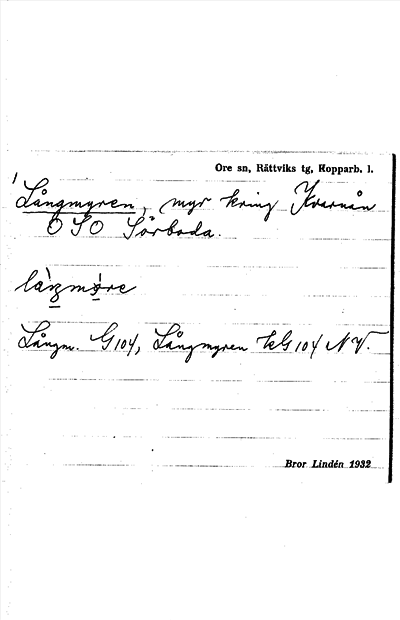 Ore sn, Rättviks tg, Kopparb. l.
1 Långmyren, myr kring Kvarnån
O S O Sörboda.
Långm. G 104, Långmyren kG 104 N V.
Bror Lindén 1932